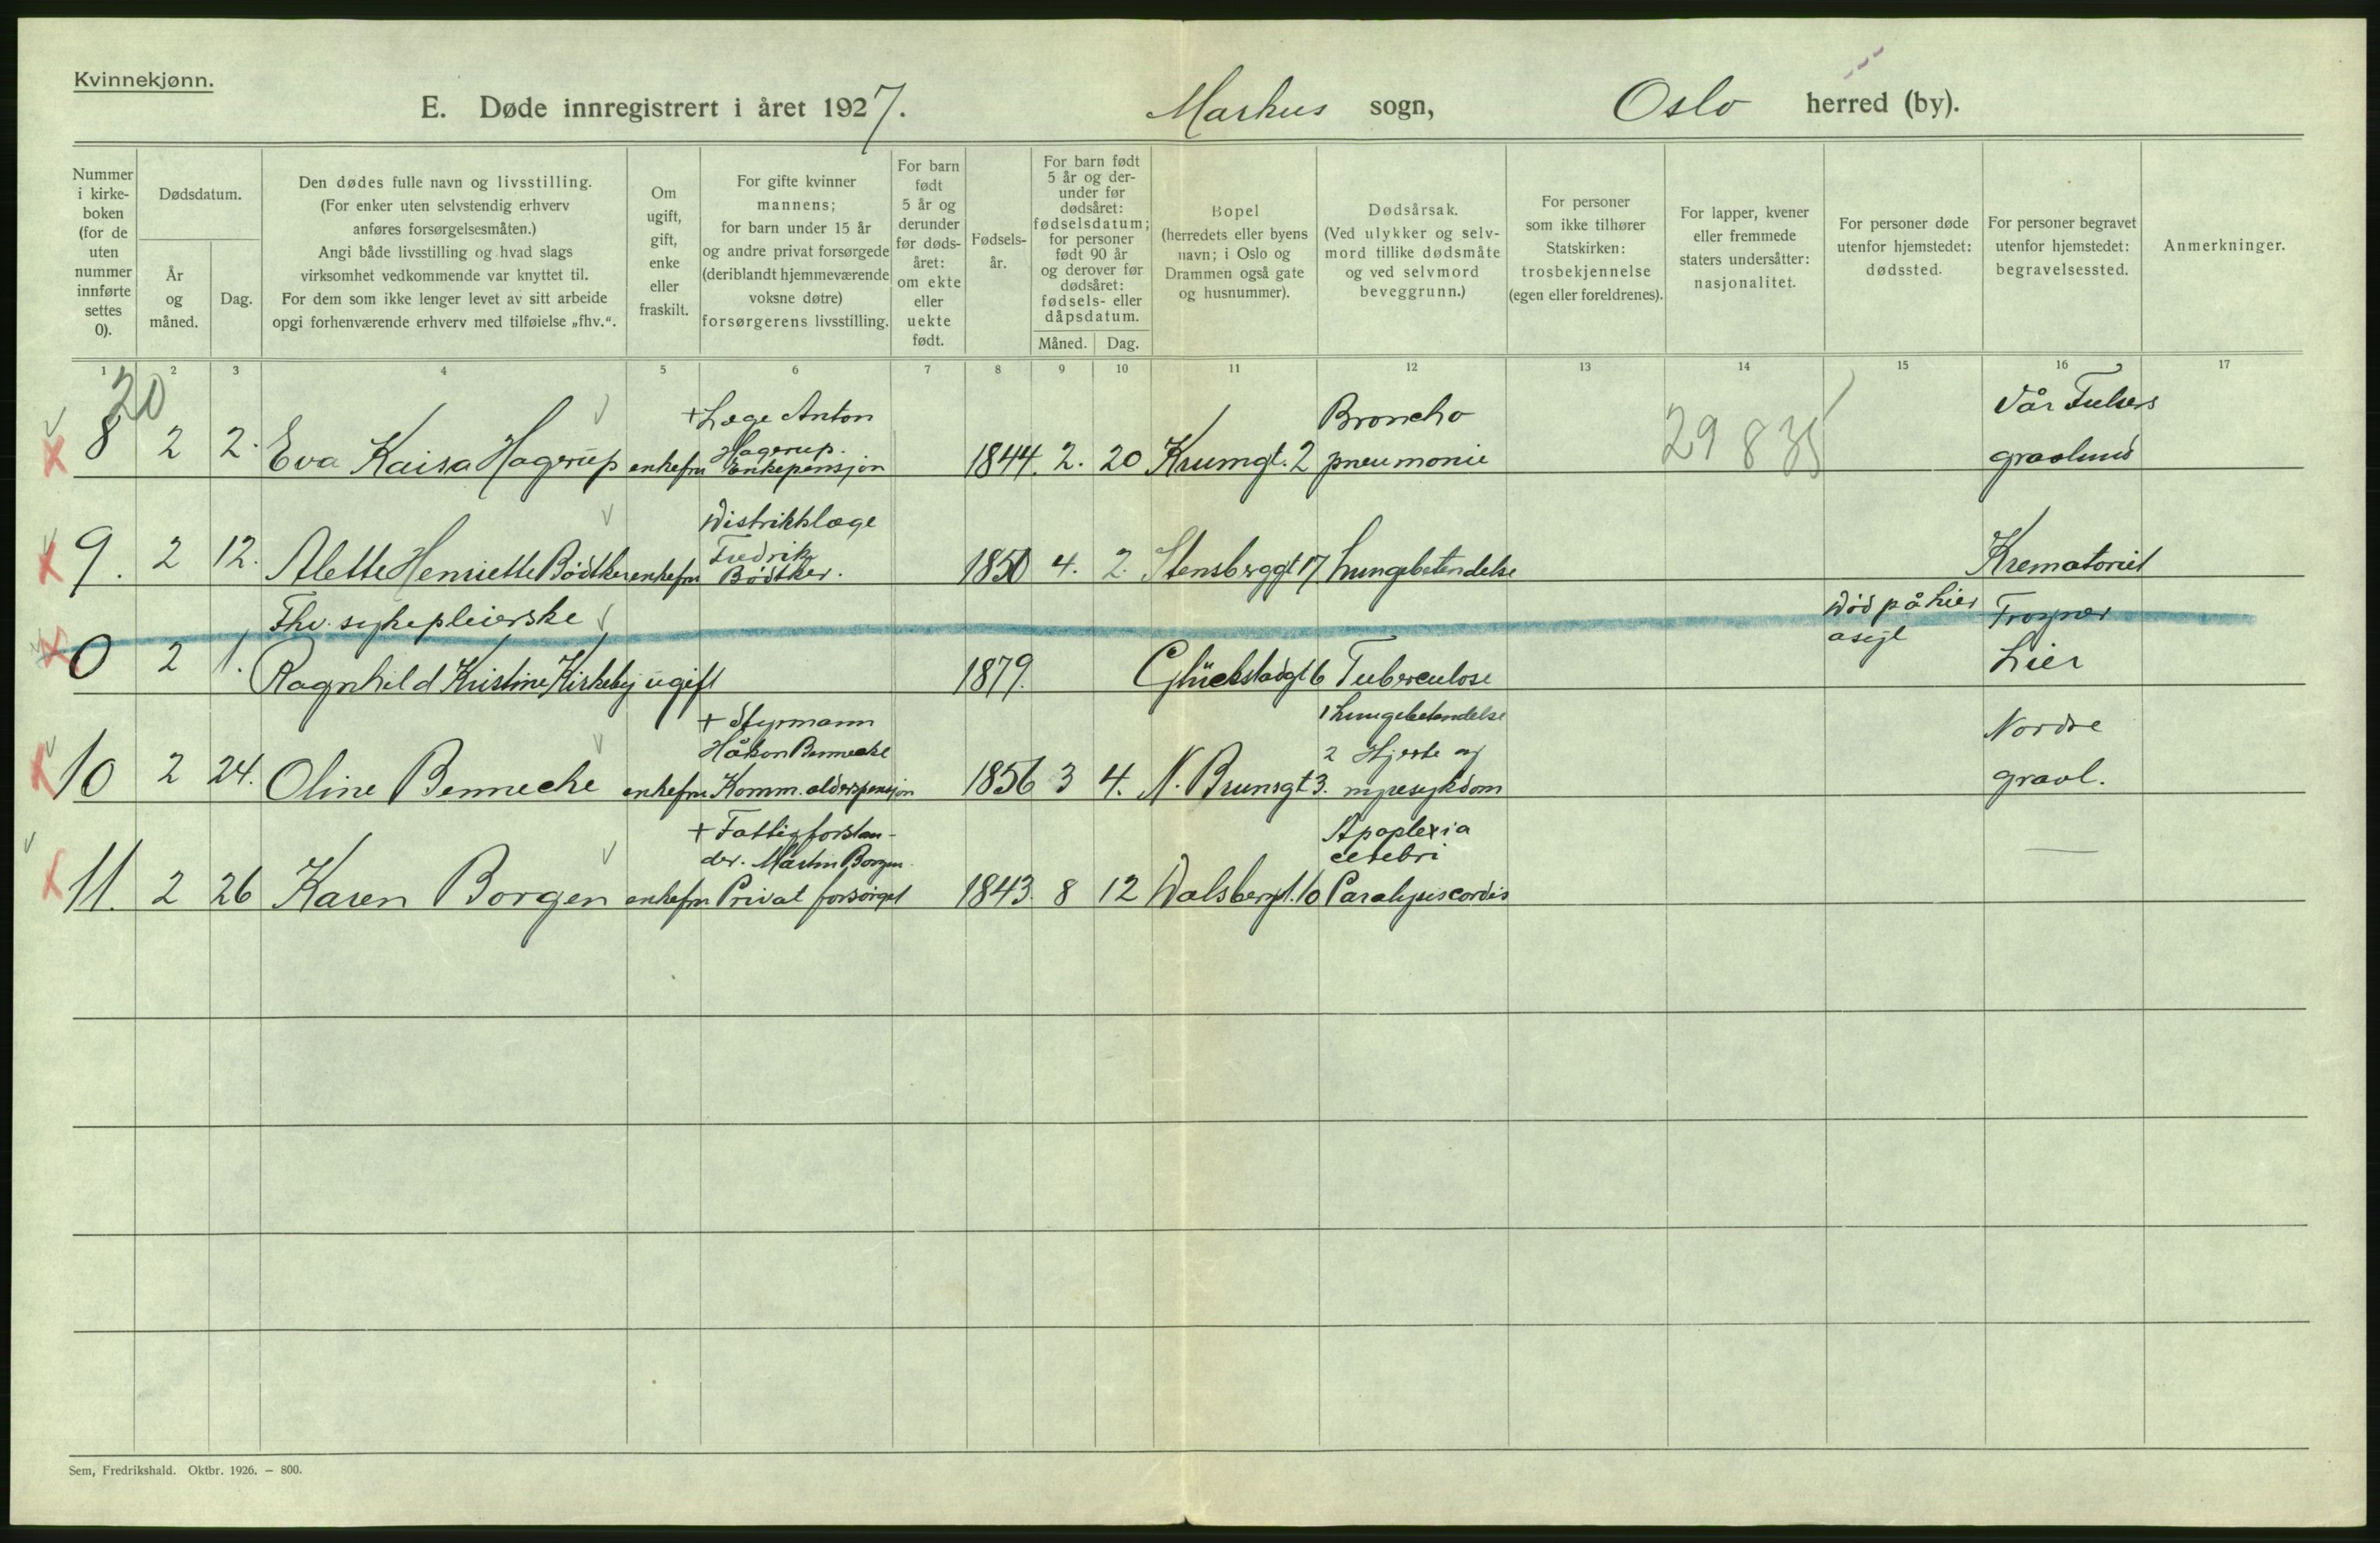 Kvinnekjønn.
E. Døde innregistrert i året 1927. Markus sogn, Oslo herred (by).
Nummer i kirke-boken (for de uten nummer innførte settes 0).
Dødsdatum.
År og måned.
Dag.
Den dødes fulle navn og livsstilling.
(For enker uten selvstendig erhverv
anføres forsørgelsesmåten.)
Angi både livsstilling og hvad slags
virksomhet vedkommende var knyttet til.
For dem som ikke lenger levet av sitt arbeide
opgi forhenværende erhverv med tilføielse „fhv.“.
Om
ugift,
gift,
enke
eller
fraskilt.
For gifte kvinner
mannens;
for barn under 15 år
og andre privat forsørgede
(deriblandt hjemmeværende
voksne døtre)
forsørgerens livsstilling.
For barn
født
5 år og
derunder
før døds-
året:
om ekte
eller
uekte
født.
Fødsels-
år.
For barn født
5 år og der-
under før
dødsåret:
fødselsdatum;
for personer
født 90 år
og derover før
dødsåret:
fødsels- eller
dåpsdatum.
Måned. Dag.
Bopel
(herredets eller byens
navn; i Oslo og
Drammen også gate
og husnummer).
Dødsårsak.
(Ved ulykker og selv-
mord tillike dødsmåte
og ved selvmord
beveggrunn.)
For personer
som ikke tilhører
Statskirken:
trosbekjennelse
(egen eller foreldrenes).
For lapper, kvener
eller fremmede
staters undersåtter:
nasjonalitet.
For personer døde
utenfor hjemstedet:
dødssted.
For personer begravet
utenfor hjemstedet:
begravelsessted.
Anmerkninger.
1 2 3 4 5 6 7 8 9 10 11 12 13 14 15 16 17
20
+ Læge Anton
Hagerup.
Broncho
Vår Frelsers
8 2 2. Eva Kaisa Hagerup enkefru Enkepensjon 1844. 2. 20 Krumgt. 2 pneumonie 29 835 gravlund
Distriktslæge
Fredrik
9. 2 12. Alette Henriette Bödtker enkefru Bödtker. 1850 4. 2. Stensberggt 17 Lungebetendelse Krematoriet
Fhv. sykepleierske
Död på Lier
asyl
Frogner
0 2 1. Ragnhild Kristine Kirkeby ugift 1879. Glückstadgt 6 Tuberculose Lier
+ Styrmann
Håkon Bennecke
1 Lungebetendelse
2 Hjerte og
Nordre
10 2 24. Oline Bennecke enkefru Komm. alderspensjon 1856 3 4. N. Brunsgt 3. nyresykdom gravl.
+ Fattigforstan-
der. Martin Borgen
Apoplexia
cerebri
11. 2 26 Karen Borgen enkefru Privat forsörget 1843. 8 12 Dalsbergt. 10 Paralysis cordis —
Sem, Fredrikshald. Oktbr. 1926. – 800.